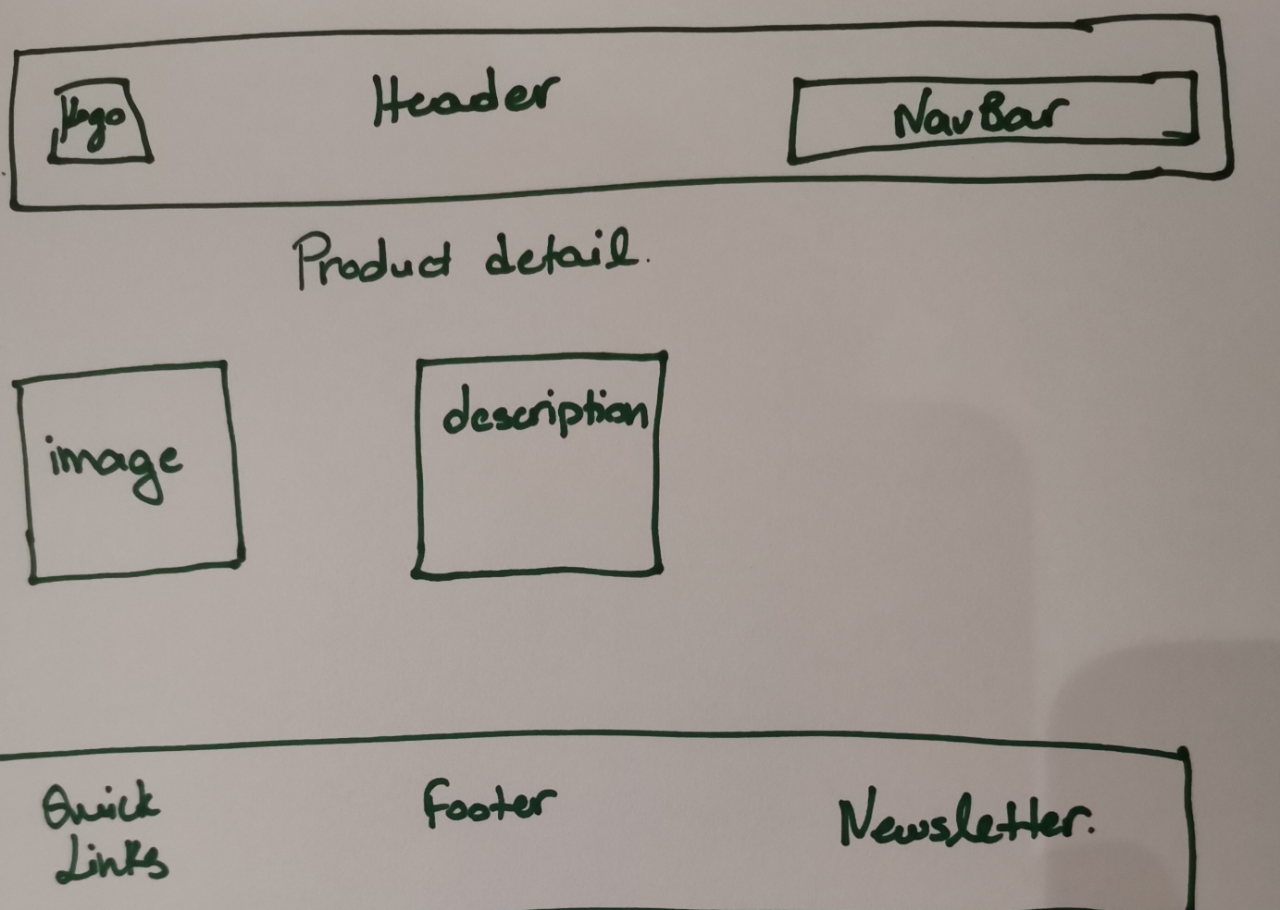 Logo
Header
NavBar
Product detail.
image
description
Quick
Links
Footer
Newsletter.